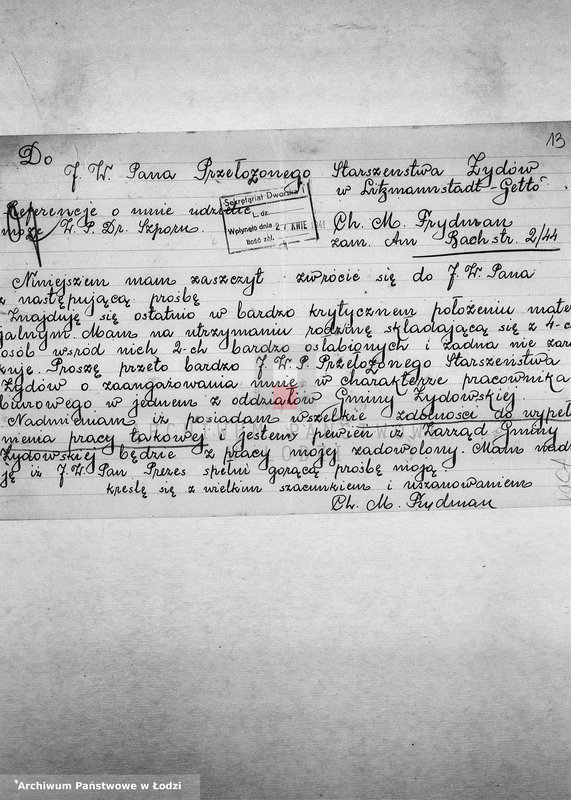 13
Do
J. W. Pana Przełożonego Starszenstwa Żydów
w Litzmannstadt-Getto.
Referencje o mnie udzielić
może W. P. Dr. Szporn.
Sekretariat Dworska 1
L. dz.
Wpłynęło dnia 21 KWIE 1941
Ilość zał.
Ch. M. Frydman
zam. Am Bach str. 2/44
Niniejszem mam zaszczyt zwrócić się do J. W. Pana
z następującą prośbę
Znajduję się ostatnio w bardzo krytycznem położeniu mater
jalnym. Mam na utrzymaniu rodzinę składającą się z 4-ch
osób wsród nich 2-ch bardzo osłabionych i żadna nie zara
. Proszę przeto bardzo J. W. P. Przełożonego Starszeństwa
Żydów o zaangażowania mnie w charakterze pracownika
biurowego w jednem z oddziałów Gminy Żydowskiej.
Nadmieniam iż posiadam wszelkie zdolności do wypeł
nienia pracy takowej i jestem pewien iż Zarząd Gminy
Żydowskiej będzie z pracy mojej zadowolony. Mam nadzi
ję iż J. W. Pan Prezes spełni gorącą prośbę moją
kreślę się z wielkim szacunkiem i uszanowaniem
Ch. M. Frydman
Archiwum Państwowe w Łodzi